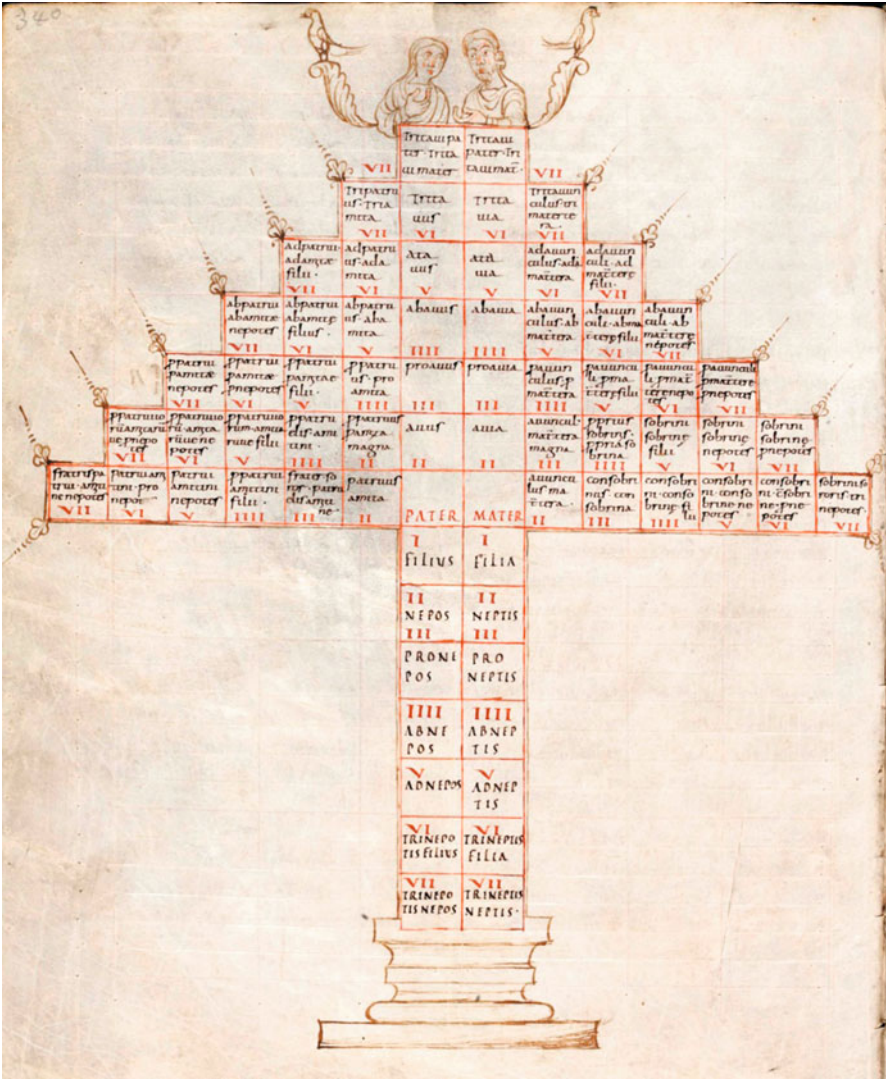 340
Tritaui pa
ter · Trita
ui mater
Tritaui
pater · Tri
taui mat̄
VII
VII
Tripatru
us · Tria
mita
VII
Trita
uus
VI
Trita
uia
VI
Tritauun
culus · tri
matrerte
ra
VII
adpatrui ·
adamitæ
filii ·
VII
adpatru
us · ada
mita
VI
ata
uus
V
atā
uia
V
adauun
culus · adā
mat̄tera
VI
adauun
culi · ad
mat̄tere
filii ·
VII
abpatrui
abamitæ
nepotes
VII
abpatrui
abamitę
filius ·
VI
abpatru
us · aba
mita ·
V
abauus
IIII
abauia
IIII
abauun
culus · ab
mat̄tera
V
abauun
culi · abma
t̄terę filii
VI
abauun
culi · ab
mat̄tere
nepotes
VII
ꝓpatrui
ꝓamitæ
nepotes
VII
ꝓpatrui
ꝓamitę
ꝓnepotes
VI
ꝓpatrui
ꝓamitæ
filii ·
V
ꝓpatru
us · pro
amita
IIII
proauus
III
proauia
III
ꝓauun
culus · ꝓ
mat̄tera
IIII
ꝓauuncu
li · ꝓma
t̄terę filii
V
ꝓauuncu
li · ꝓmat̄
tere nepo
tes
VI
ꝓauunculi
ꝓmat̄tere
ꝓnepotes
VII
VII
VI
V
IIII
ꝓpatruus
ꝓamita
magna
III
auus
II
auia
II
auuncul ·
mat̄tera
magna
III
ꝓprius
sobrinus ·
ꝓpria so
brina
IIII
sobrini
sobrinę
filii
V
sobrini
sobrinę
nepotes
VI
sobrini
sobrinę
ꝓnepotes
VII
fratris pa
trui · amitę
ne nepotes
VII
patrui am
tini · pro
nepot
VI
patrui
amitini
nepotes
V
ꝓpatrui
amitini
filii ·
IIII
III
patruus
amita
II
PATER
MATER
auuncu
lus ma
t̄tera
II
consobri
nus · con
sobrina
III
consobri
ni · conso
brinę fi
lii
IIII
consobri
ni · conso
brine ne
potes
V
consobri
ni · c̄sobri
ne · ꝓne
potes
VI
sobrini so
roris · tri
nepotes ·
VII
I I
FILIUS FILIA
II II
NEPOS NEPTIS
III III
PRONE PRO
POS NEPTIS
IIII IIII
ABNE ABNEP
POS TIS
V V
ADNEPOS ADNEP
TIS
VI VI
TRINEPO TRINEPTIS
TIS FILIUS FILIA
VII VII
TRINEPO TRINEPTIS
TIS NEPOS NEPTIS ·